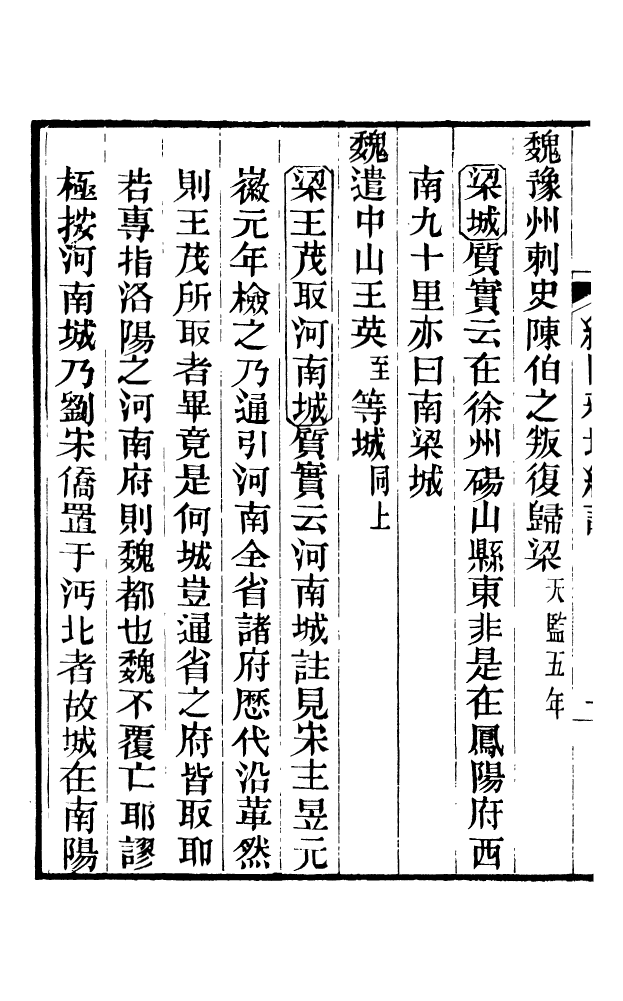 魏豫州刺史陳伯之叛復歸梁天監五年
梁城質實云在徐州碭山縣東非是在鳳陽府西
南九十里亦曰南梁城
魏遣中山王英至等城同上
梁王茂取河南城質實云河南城註見宋主昱元
徽元年檢之乃通引河南全省諸府歷代沿革然
則王茂所取者畢竟是何城豈通省之府皆取耶
若專指洛陽之河南府則魏都也魏不覆亡耶謬
極按河南城乃劉宋僑置于沔北者故城在南陽